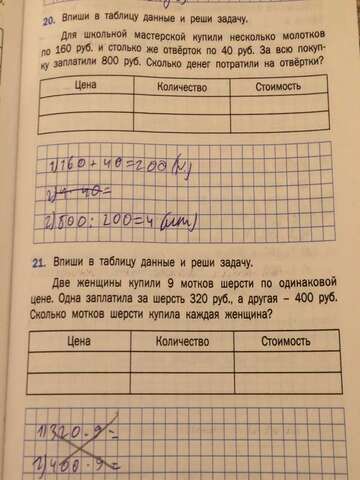 20. Впиши в таблицу данные и реши задачу.
Для школьной мастерской купили несколько молотков
по 160 руб. и столько же отвёрток по 40 руб. За всю покуп-
ку заплатили 800 руб. Сколько денег потратили на отвёртки?
Цена Количество Стоимость
1) 160 + 40 = 200 (р.)
2) 4 · 40 =
2) 800 : 200 = 4 (шт)
21. Впиши в таблицу данные и реши задачу.
Две женщины купили 9 мотков шерсти по одинаковой
цене. Одна заплатила за шерсть 320 руб., а другая – 400 руб.
Сколько мотков шерсти купила каждая женщина?
Цена Количество Стоимость
1) 320 · 9 =
2) 400 · 9 =